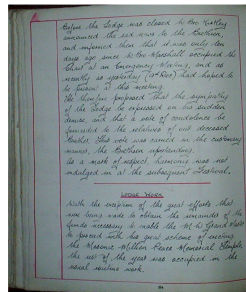 Before the Lodge was closed to Bro Kirkby
announced the sad news to the Brethren,
and informed them that it was only ten
days ago since Bro Marshall occupied the
Chair at an Emergency Meeting, and as
recently as yesterday had hoped to
be present at this meeting.
He therefore proposed that the sympathy
of the Lodge be expressed on his sudden
demise, and that a vote of condolence be
forwarded to the relatives of our deceased
Brother. This vote was carried in the customary
manner, the Brethren upstanding.
As a mark of respect, harmony was not
indulged in at the subsequent Festival.
LODGE WORK
With the exception of the great efforts that
were being made to obtain the remainder of the
funds necessary to enable the M.W. Grand Master
to proceed with his great scheme of erecting
the Masonic Million Peace Memorial Temple,
the rest of the year was occupied in the
usual routine work.